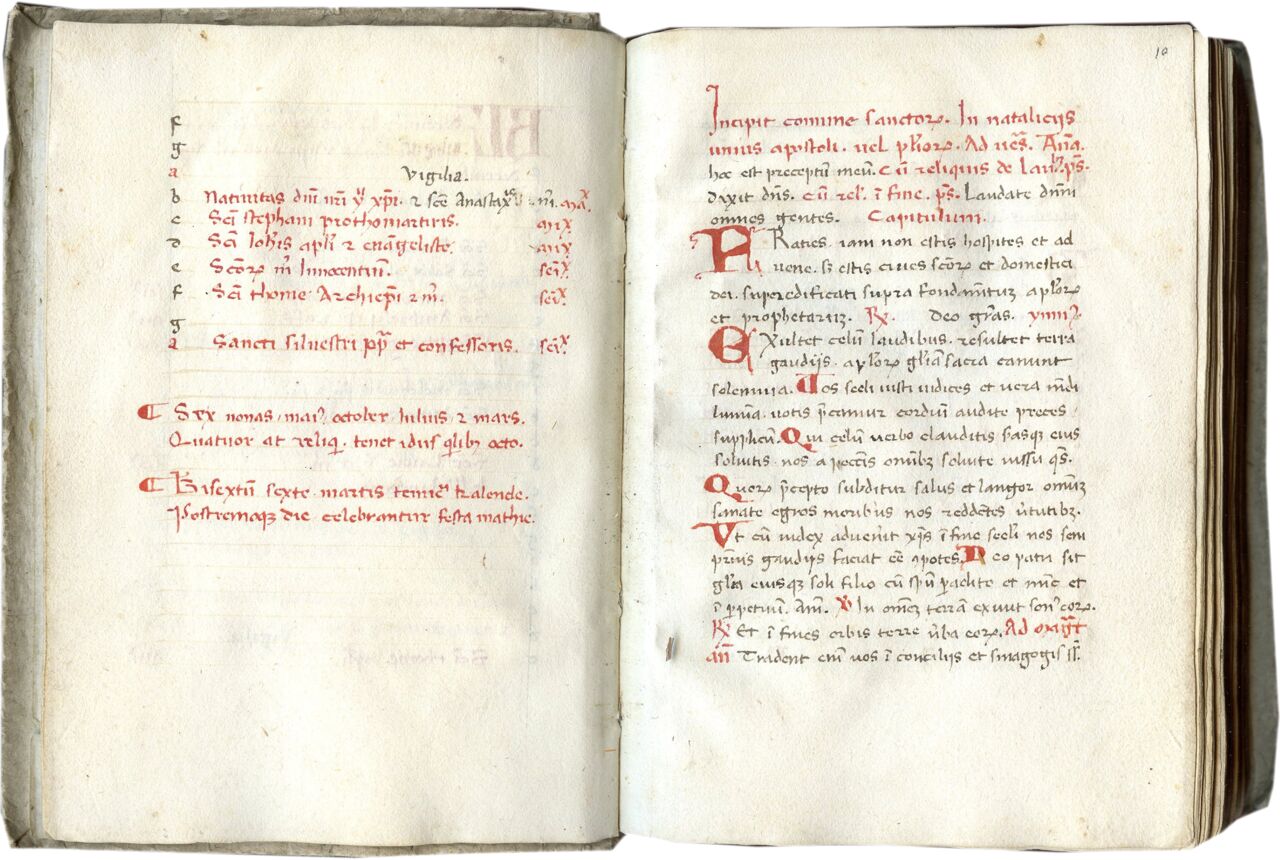 f
g
a Vigilia.
b Nativitas dñi nr̃i yħ xp̃i. ⁊ scẽ Anastax
c Scĩ stephani prothomartiris.
d Scĩ Ioħis apłi ⁊ evangeliste.
e Sc̃orꝝ m̃ Innocentiũ.
f Scĩ thome Archiep̃i ⁊ m̃.
g
a Sancti silvestri pp̃ et confessoris.
Sex nonas maiꝰ october Iulius ⁊ mars.
Quatuor at reliq̃. tenet idus q̃libꝫ octo.
Bisextũ sexte martis kalende.
Postremaqꝫ die celebrantur festa mathie.
10
Incipit comune sanctorꝝ. In nataliciis
unius apostoli. vel płiorꝝ. Ad
hoc est preceptũ meũ. Cũ reliquis de laud. ps̃.
Dixit dñs. Cũ rel. ĩ fine. ps̃. Laudate dñm
omnes gentes. Capitulum.
FRatres. iam non estis hospites et ad
vene. sꝫ estis cives sc̃orꝝ et domestici
dei. superedificati supra fondamẽtuꝫ apłorꝝ
et prophetaruꝫ. ℞. deo gr̃as.
EXultet celũ laudibus. resultet terra
gaudiis. apłorꝝ głiã sacra canunt
solemnia. Vos secli iusti iudices et vera mũdi
lumina. votis p̃camur cordiũ audite preces
supplicũ. Qui celũ verbo clauditis serasqꝫ eius
solvitis. nos a peccãtis omibꝫ solvite iussu qs̃.
Quorꝝ p̃cepto subditur salus et langor omiuꝫ
sanate egros moribus nos reddẽtes ṽtutibꝫ.
Vt cũ iudex advenit xp̃s ĩ fine secli nos sem
piterni gaudiis faciat eẽ 9potes. Deo patri sit
głia eiusqꝫ soli filio cũ spũ paclito et nũc et
ĩ ꝑpetuum. Am̃. ℣ In omẽꝫ terrã exivit son eorꝝ.
℞ Et ĩ fines orbis terre v̄ba eorꝝ. Ad
añ Tradent enĩ vos ĩ conciliis et sinagogis